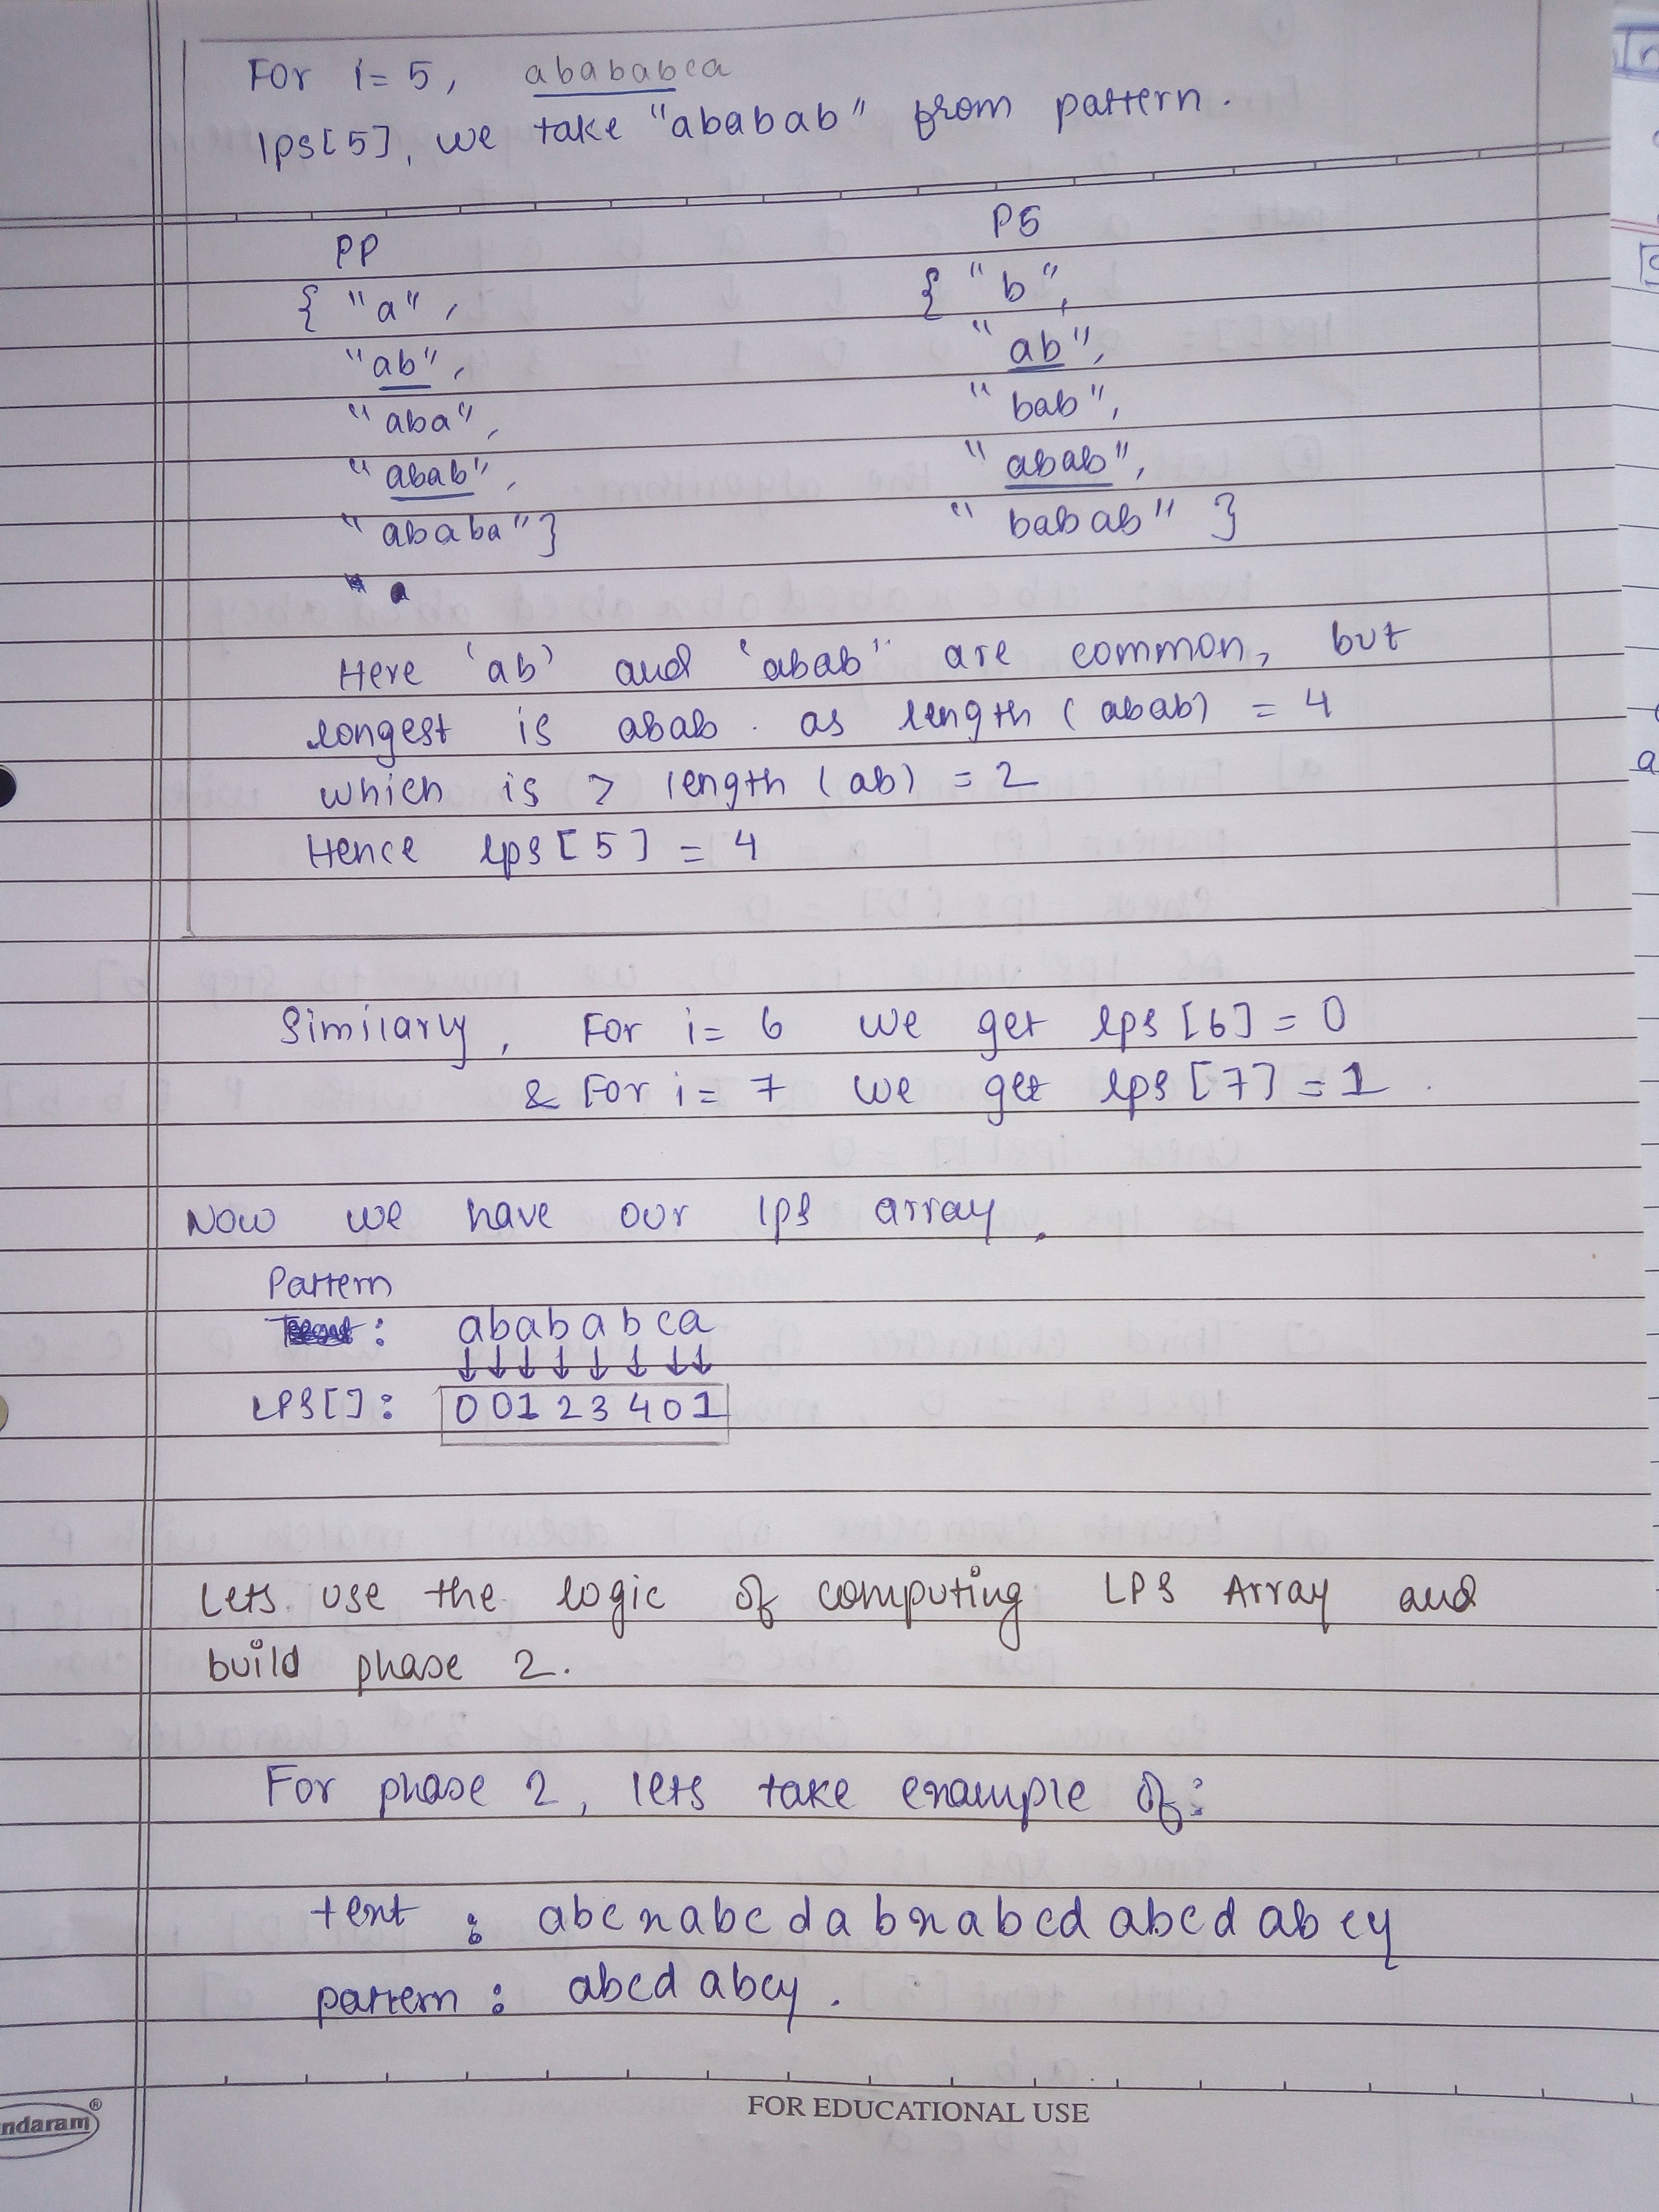 For i= 5, abababca
lps[5], we take "ababab" from pattern.
PP PS
{ "a", { "b",
"ab", "ab",
"aba", "bab",
"abab", "abab",
"ababa"} "babab" }
Here 'ab' and 'abab" are common, but
longest is abab. as length (abab) = 4
which is > length (ab) = 2
Hence lps[5] = 4
Similarly, For i= 6 we get lps[6] = 0
& For i= 7 we get lps[7] = 1.
Now we have our lps array.
Pattern
: abababca
↓↓↓↓↓↓↓↓
LPS[]: 00123401
Lets use the logic of computing LPS Array and
build phase 2.
For phase 2, lets take example of:
text : abcxabcdabxabcdabcdabcy
pattern : abcdabcy.
ndaram®
FOR EDUCATIONAL USE